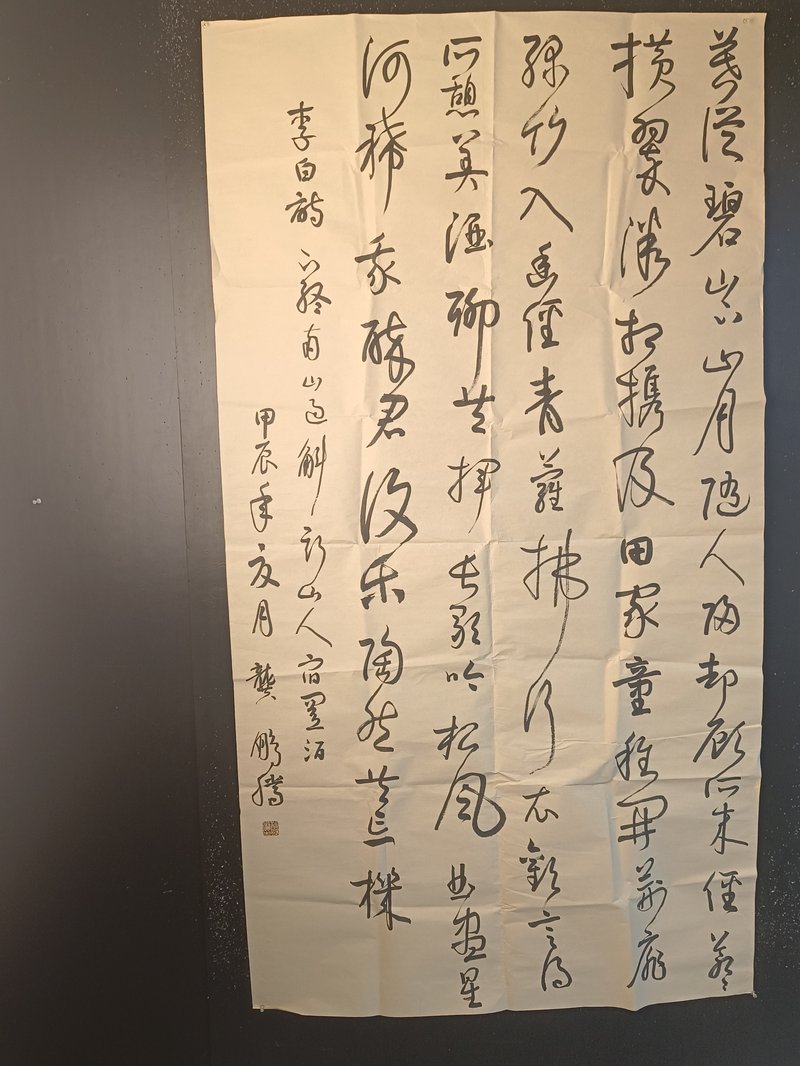 暮從碧山下山月隨人歸却顧所來徑蒼々
橫翠微相攜及田家童稚開荊扉
綠竹入幽徑青蘿拂行衣歡言得
所憩美酒聊共揮長歌吟松風曲盡星
河稀我醉君復樂陶然共忘機
李白詩 下終南山過斛斯山人宿置酒
甲辰年夏月 龔鵬騰